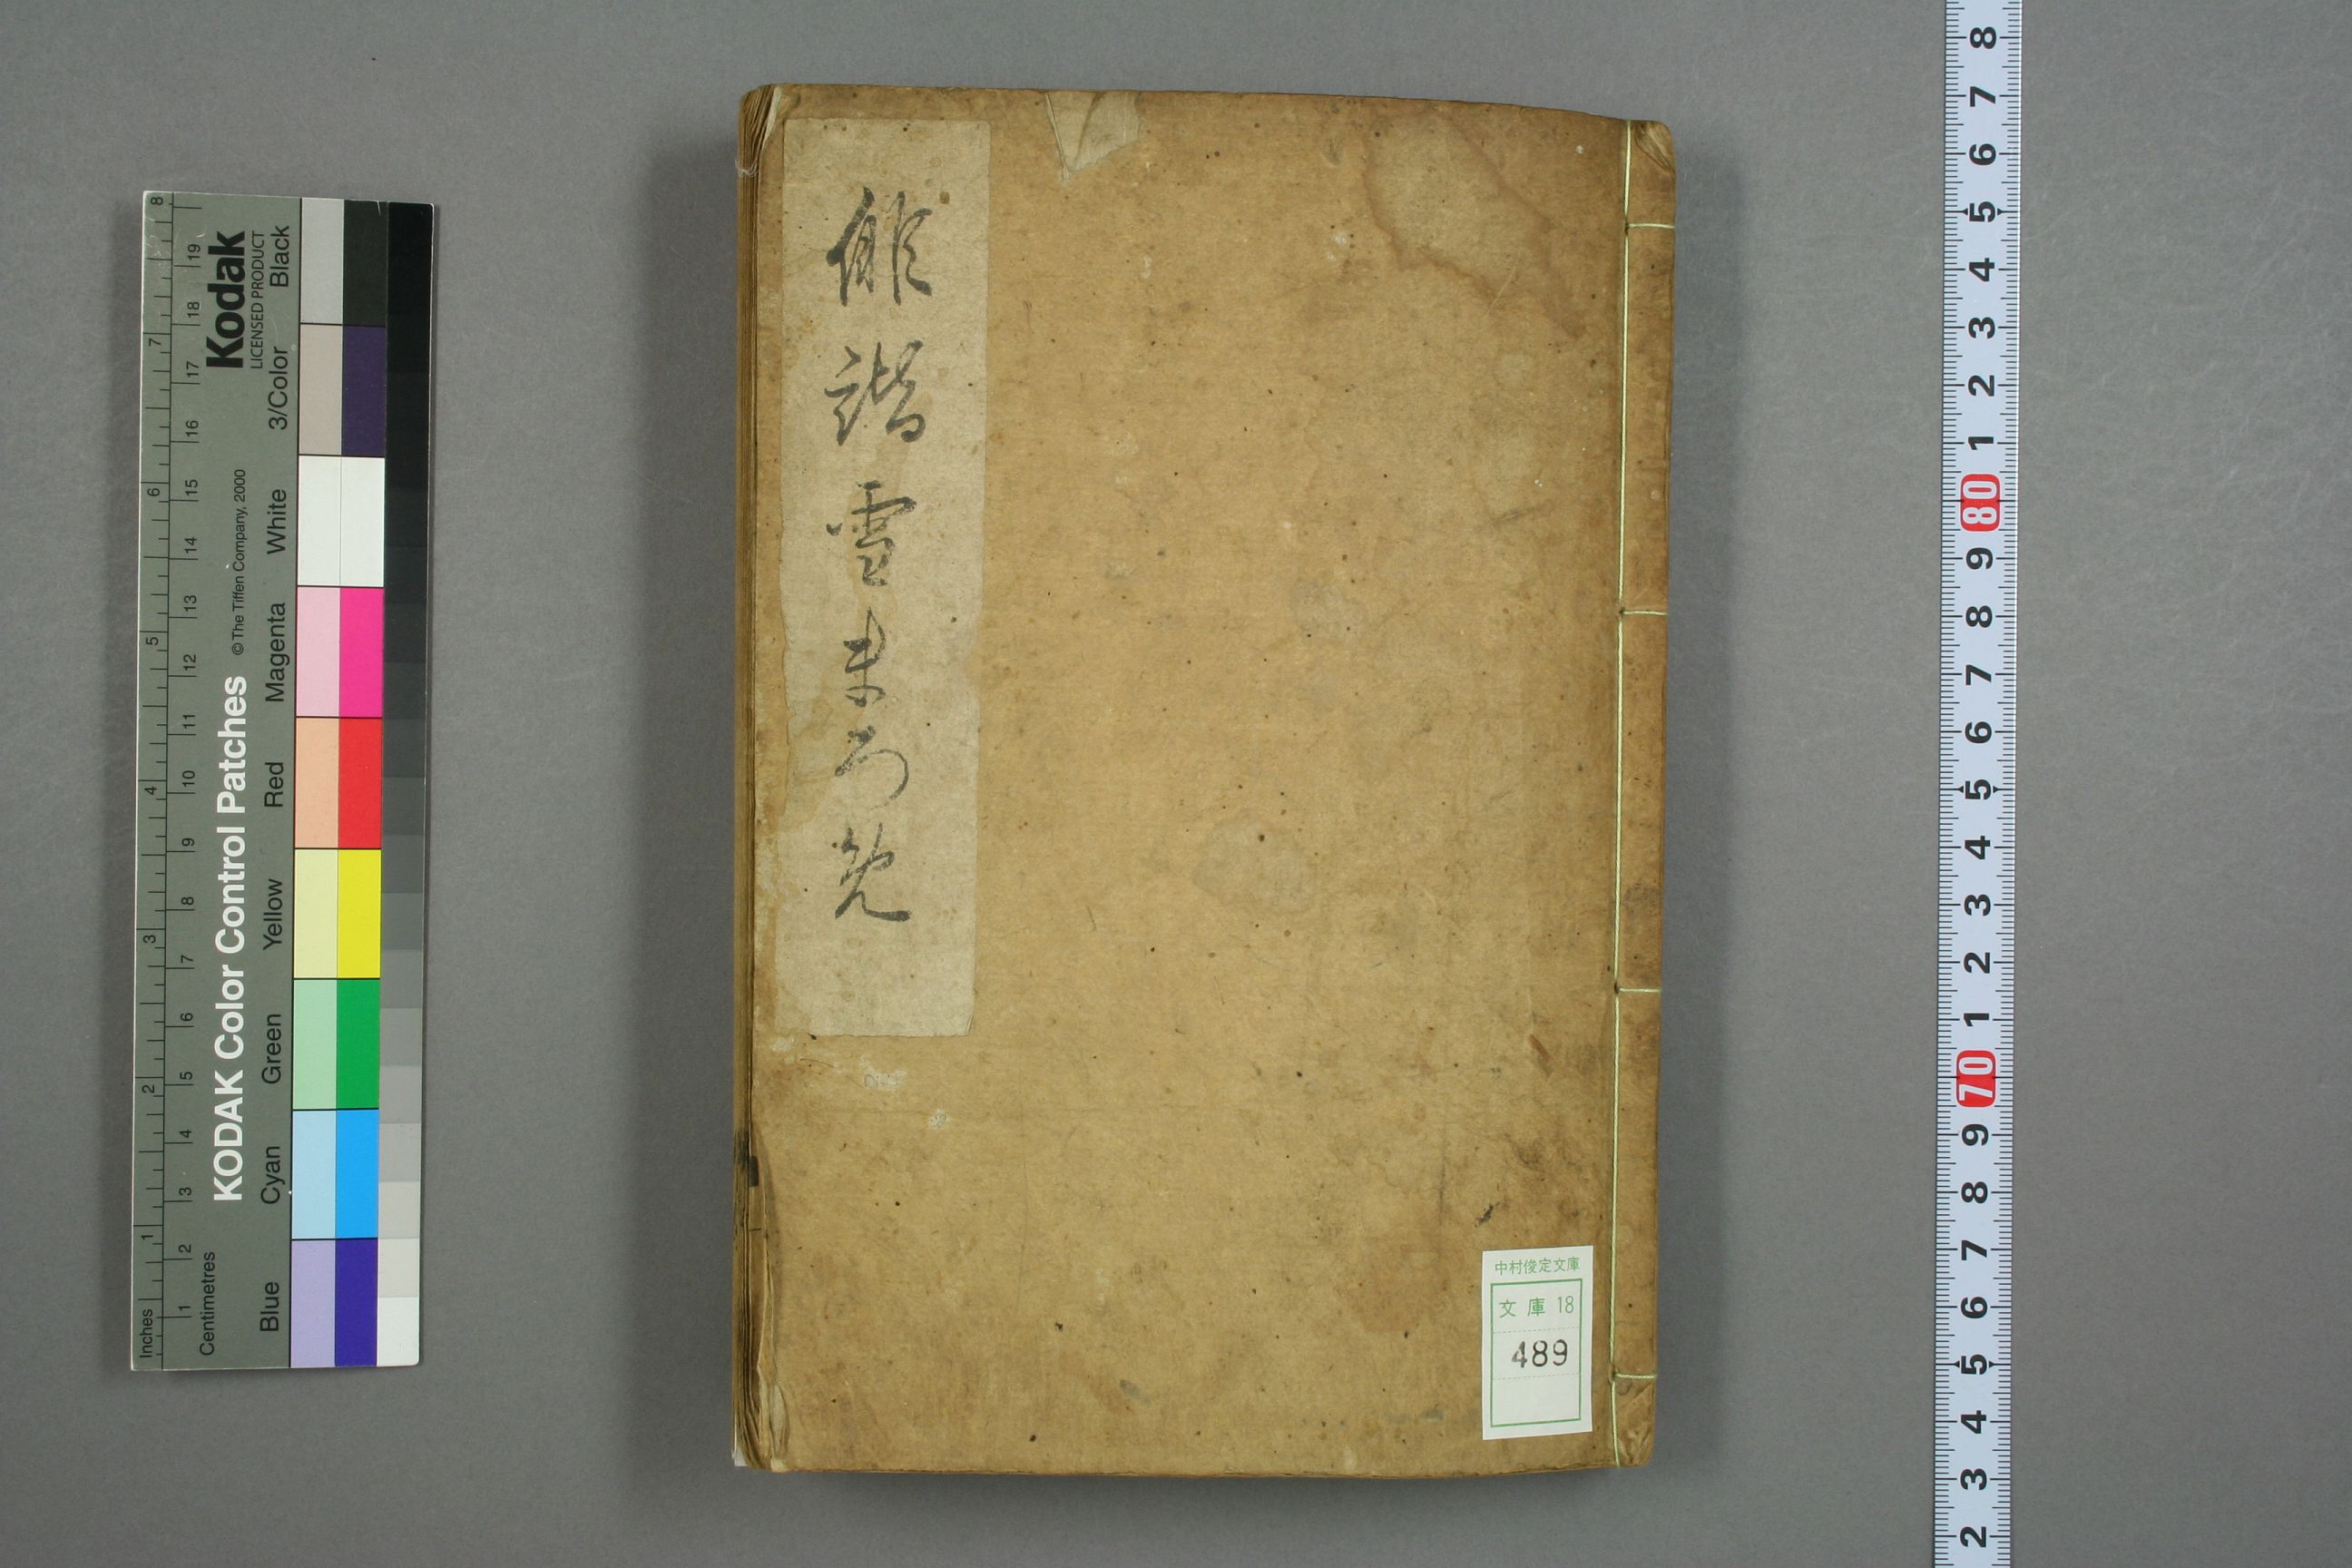 俳諧雪まろけ
中村俊定文庫
文庫 18
489
KODAK Color Control Patches
© The Tiffen Company, 2000
Kodak
LICENSED PRODUCT
Inches
1 2 3 4 5 6 7 8
Centimetres
1 2 3 4 5 6 7 8 9 10 11 12 13 14 15 16 17 18 19
Blue Cyan Green Yellow Red Magenta White 3/Color Black
8 7 6 5 4 3 2 1 80 9 8 7 6 5 4 3 2 1 70 9 8 7 6 5 4 3 2